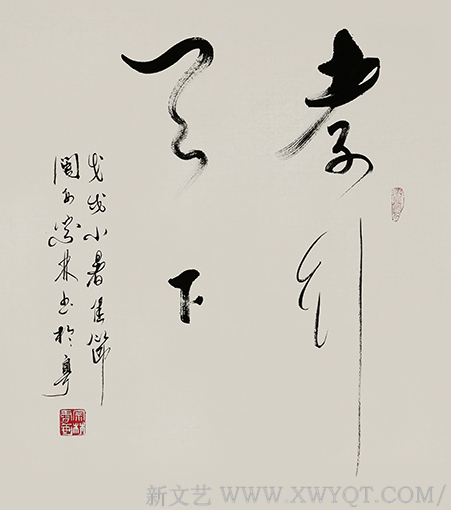 孝行
天下
戊戌小暑佳節
閩西林书於粤
新文艺 WWW.XWYQT.COM/